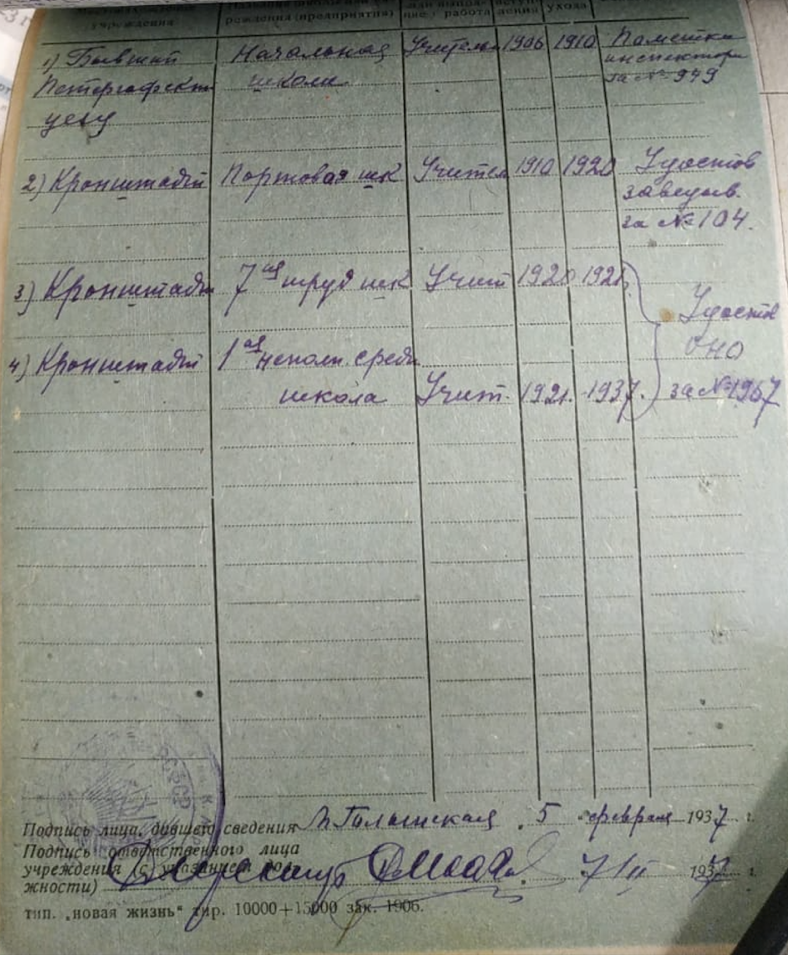 учреждения
рождения (предприятия)
работа
ухода
1) Бывший Начальная Учитель 1906 1910 Пометка
Петергофский школа инспектора
уезд за № 949
2) Кронштадт Портовая шк Учител 1910 1920 Удостов
заведыв.
за № 104.
3) Кронштадт 7ая труд шк Учит 1920 1921.
Удостов
ОНО
4) Кронштадт 1ая неполн. средн
школа Учит. 1921. 1937. за № 1967
РСФСР
Подпись лица, давшего сведения 5 февраля 1937 г.
Подпись ответственного лица
учреждения (с указанием
жности) Директор 7/II 1937 г.
тип. „новая жизнь“ тир. 10000+15000 зак. 1906.